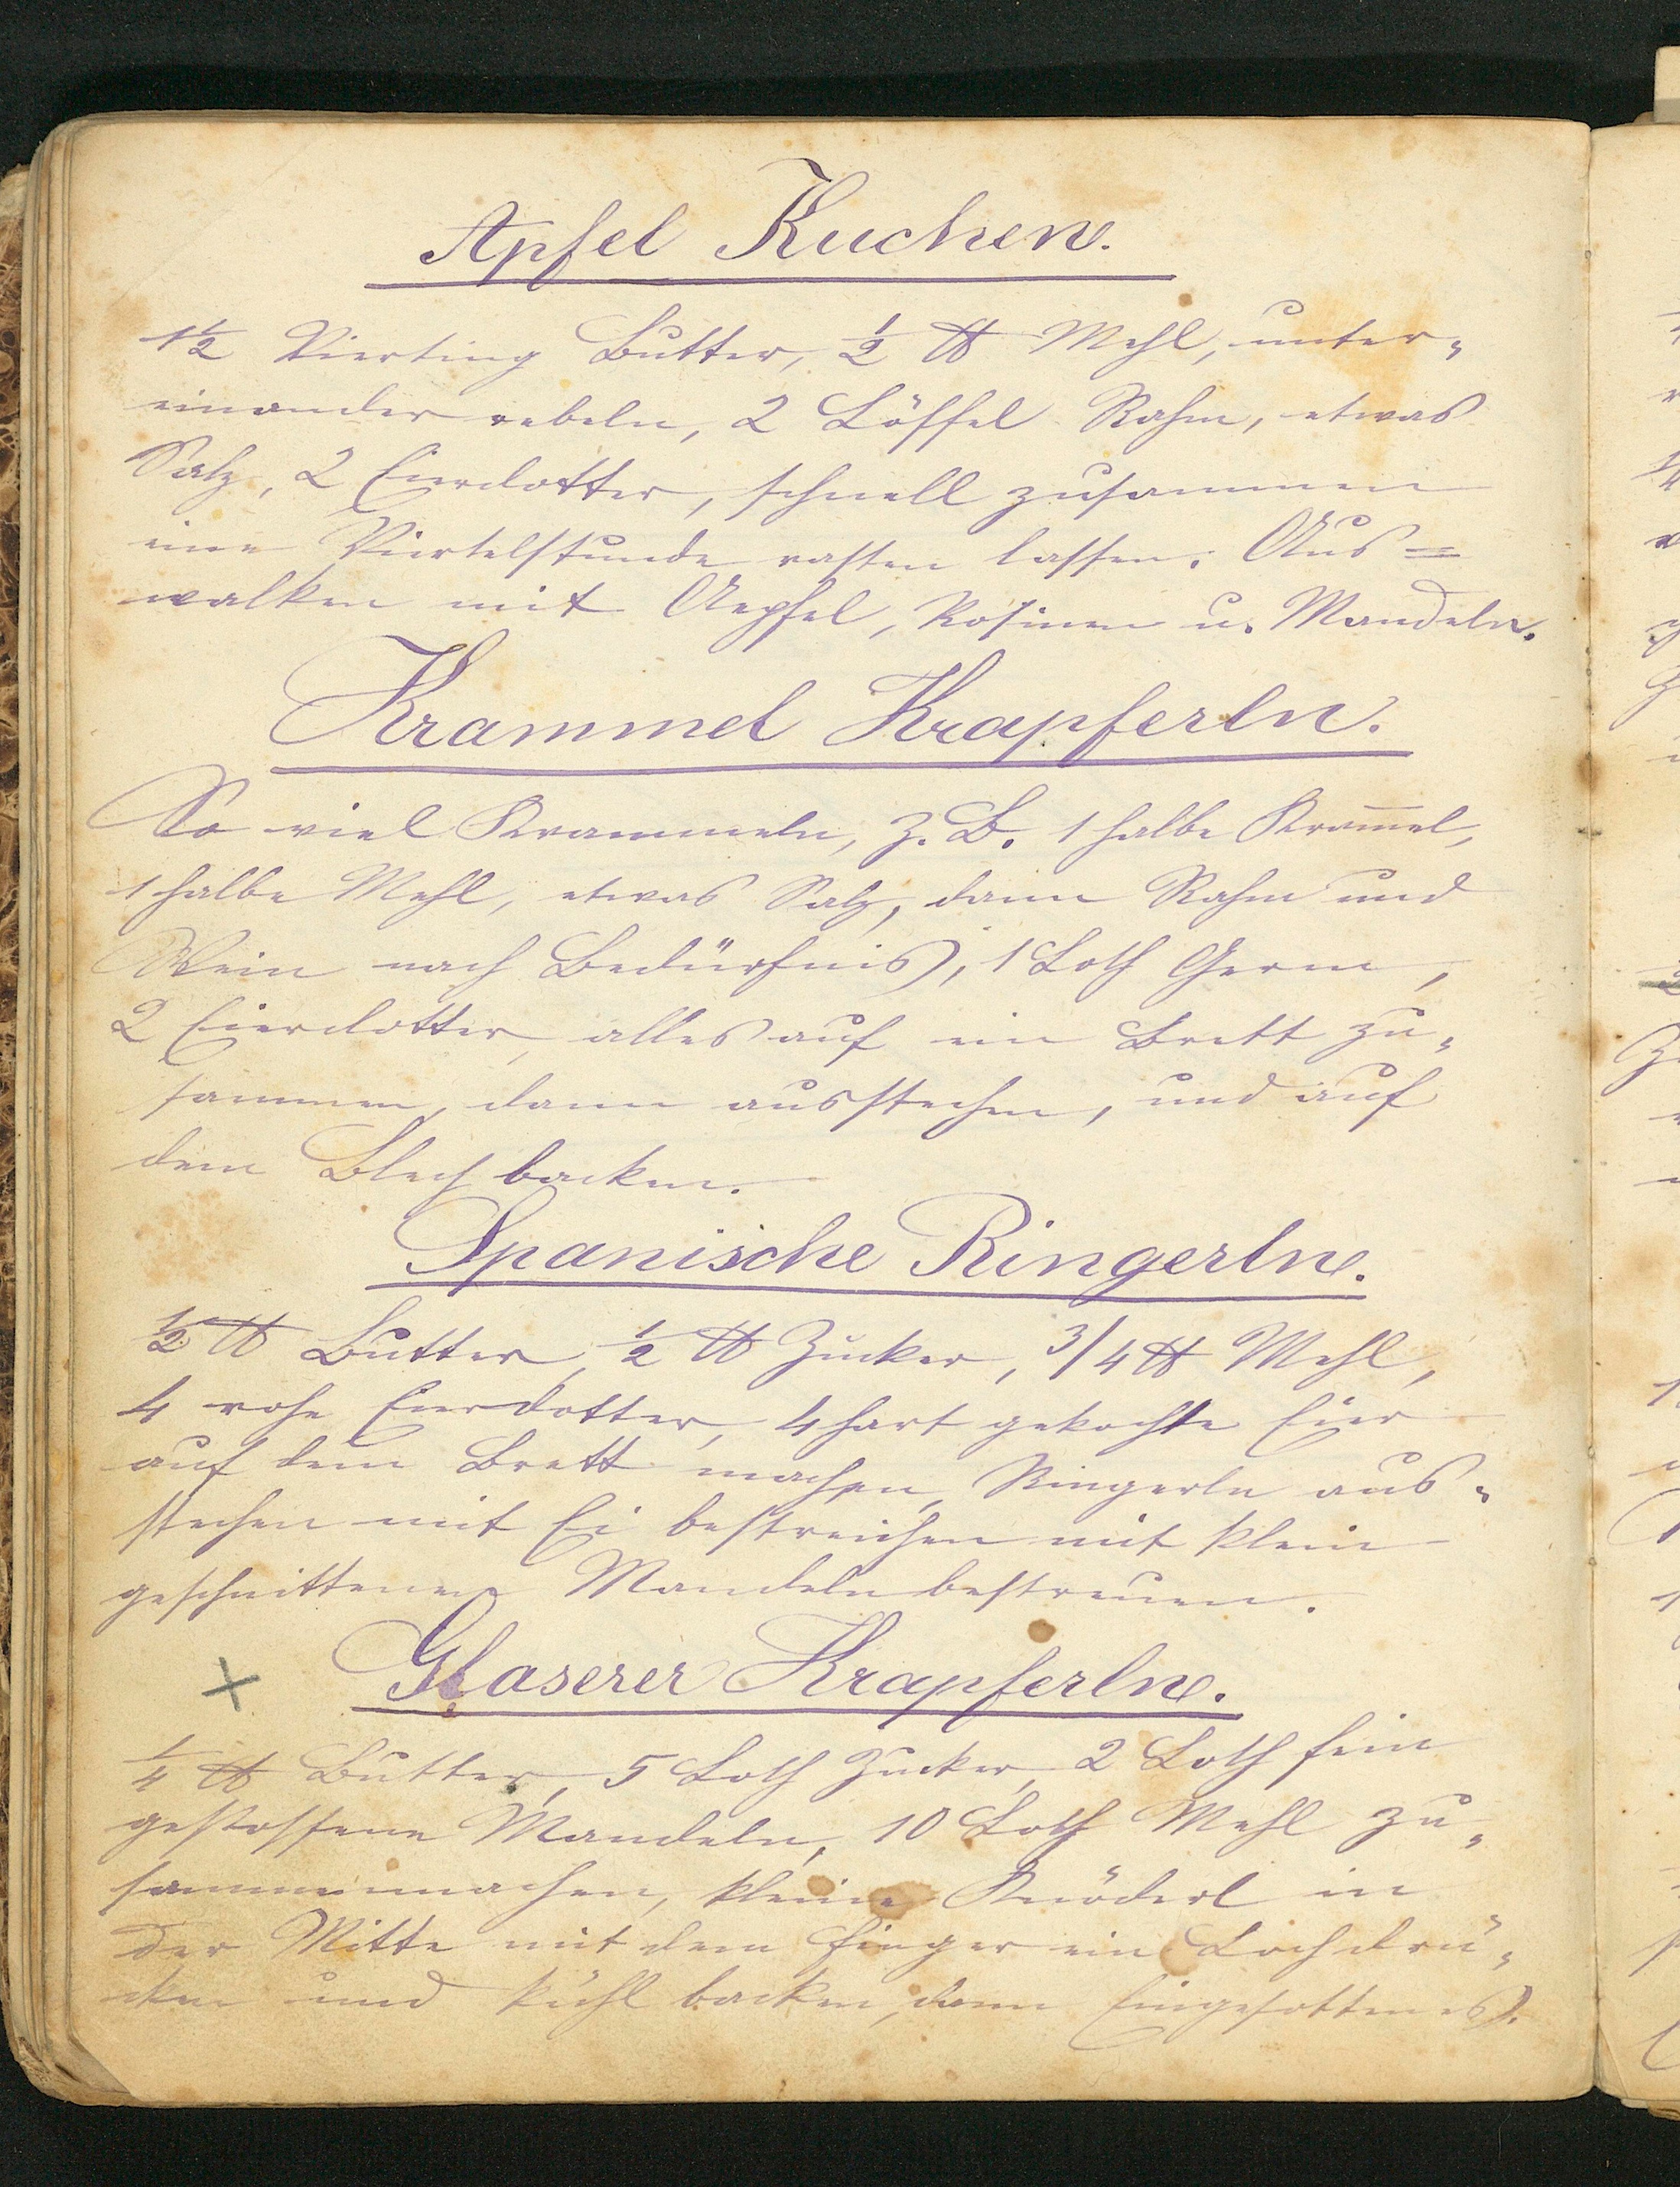 Apfel Kuchen.
1½ Vierting Butter, ½ ℔ Mehl, unter„
einander rebeln, 2 Löffel Rahm, etwas
Salz, 2 Eierdotter, schnell zusammen
eine Viertelstunde rasten lassen. Aus=
walken mit Aepfel, Rosinen u. Mandeln.
Krammel Krapferln.
So viel Krammeln, z. B. 1 halbe Kram̅el,
1 halbe Mehl, etwas Salz, dann Rahm und
Wein nach Bedürfnis, 1 Loth Germ,
2 Eierdotter, alles auf ein Brett zu„
sammen, dann ausstechen, und auf
dem Blech backen.
Spanische Ringerln.
½ ℔ Butter, ½ ℔ Zucker, 3/4 ℔ Mehl,
4 rohe Eierdotter, 4 hart gekochte Eier
auf dem Brett machen, Ringerln aus„
stechen mit Ei bestreichen mit klein
geschnittenen Mandeln bestreuen.
+ Glaserer Krapferln.
¼ ℔ Butter, 5 Loth Zucker, 2 Loth fein
gestossene Mandeln, 10 Loth Mehl zu„
sammenmachen, kleine Knöderl in
der Mitte mit dem Finger ein Loch drü„
cken und kühl backen, dann Eingesottenes.